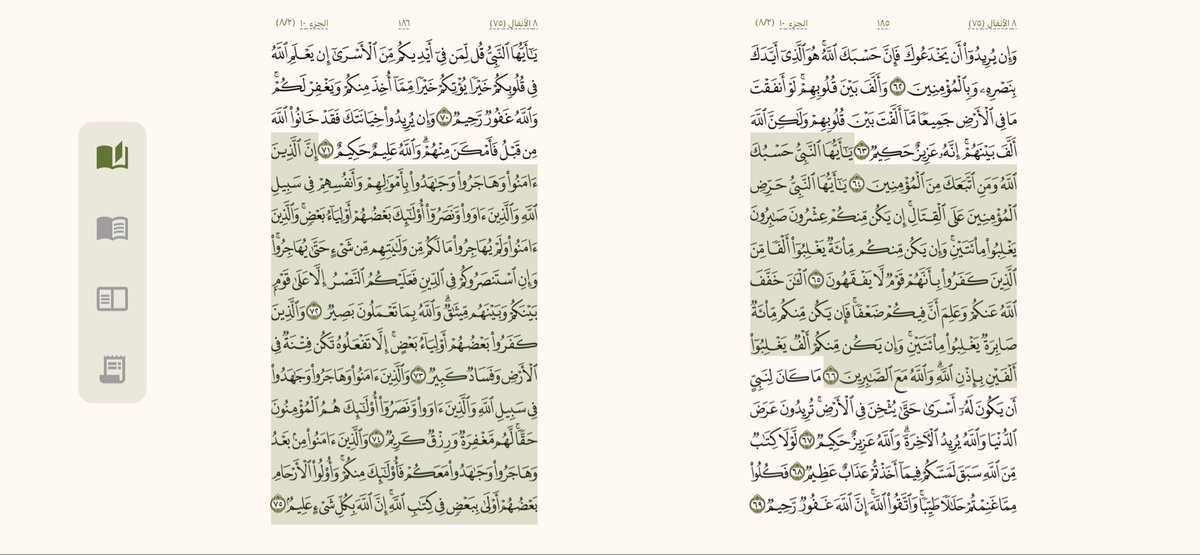 ٨ الأنفال (٧٥) ١٨٥ الجزء ١٠ (٨/٢)
وَإِن يُرِيدُوٓاْ أَن يَخْدَعُوكَ فَإِنَّ حَسْبَكَ ٱللَّهُۚ هُوَ ٱلَّذِيٓ أَيَّدَكَ
بِنَصْرِهِۦ وَبِٱلْمُؤْمِنِينَ ٦٢ وَأَلَّفَ بَيْنَ قُلُوبِهِمْۚ لَوْ أَنفَقْتَ
مَا فِي ٱلْأَرْضِ جَمِيعًا مَّآ أَلَّفْتَ بَيْنَ قُلُوبِهِمْ وَلَٰكِنَّ ٱللَّهَ
أَلَّفَ بَيْنَهُمْۚ إِنَّهُۥ عَزِيزٌ حَكِيمٌ ٦٣ يَٰٓأَيُّهَا ٱلنَّبِيُّ حَسْبُكَ
ٱللَّهُ وَمَنِ ٱتَّبَعَكَ مِنَ ٱلْمُؤْمِنِينَ ٦٤ يَٰٓأَيُّهَا ٱلنَّبِيُّ حَرِّضِ
ٱلْمُؤْمِنِينَ عَلَى ٱلْقِتَالِۚ إِن يَكُن مِّنكُمْ عِشْرُونَ صَٰبِرُونَ
يَغْلِبُواْ مِاْئَتَيْنِۚ وَإِن يَكُن مِّنكُم مِّاْئَةٌ يَغْلِبُوٓاْ أَلْفًا مِّنَ
ٱلَّذِينَ كَفَرُواْ بِأَنَّهُمْ قَوْمٌ لَّا يَفْقَهُونَ ٦٥ ٱلْـَٰٔنَ خَفَّفَ
ٱللَّهُ عَنكُمْ وَعَلِمَ أَنَّ فِيكُمْ ضَعْفًاۚ فَإِن يَكُن مِّنكُم مِّاْئَةٌ
صَابِرَةٌ يَغْلِبُواْ مِاْئَتَيْنِۚ وَإِن يَكُن مِّنكُمْ أَلْفٌ يَغْلِبُوٓاْ
أَلْفَيْنِ بِإِذْنِ ٱللَّهِۗ وَٱللَّهُ مَعَ ٱلصَّٰبِرِينَ ٦٦ مَا كَانَ لِنَبِيٍّ
أَن يَكُونَ لَهُۥٓ أَسْرَىٰ حَتَّىٰ يُثْخِنَ فِي ٱلْأَرْضِۚ تُرِيدُونَ عَرَضَ
ٱلدُّنْيَا وَٱللَّهُ يُرِيدُ ٱلْأٓخِرَةَۗ وَٱللَّهُ عَزِيزٌ حَكِيمٌ ٦٧ لَّوْلَا كِتَٰبٌ
مِّنَ ٱللَّهِ سَبَقَ لَمَسَّكُمْ فِيمَآ أَخَذْتُمْ عَذَابٌ عَظِيمٌ ٦٨ فَكُلُواْ
مِمَّا غَنِمْتُمْ حَلَٰلًا طَيِّبًاۚ وَٱتَّقُواْ ٱللَّهَۚ إِنَّ ٱللَّهَ غَفُورٌ رَّحِيمٌ ٦٩
٨ الأنفال (٧٥) ١٨٦ الجزء ١٠ (٨/٢)
يَٰٓأَيُّهَا ٱلنَّبِيُّ قُل لِّمَن فِيٓ أَيْدِيكُم مِّنَ ٱلْأَسْرَىٰٓ إِن يَعْلَمِ ٱللَّهُ
فِي قُلُوبِكُمْ خَيْرًا يُؤْتِكُمْ خَيْرًا مِّمَّآ أُخِذَ مِنكُمْ وَيَغْفِرْ لَكُمْۚ
وَٱللَّهُ غَفُورٌ رَّحِيمٌ ٧٠ وَإِن يُرِيدُواْ خِيَانَتَكَ فَقَدْ خَانُواْ ٱللَّهَ
مِن قَبْلُ فَأَمْكَنَ مِنْهُمْۗ وَٱللَّهُ عَلِيمٌ حَكِيمٌ ٧١ إِنَّ ٱلَّذِينَ
ءَامَنُواْ وَهَاجَرُواْ وَجَٰهَدُواْ بِأَمْوَٰلِهِمْ وَأَنفُسِهِمْ فِي سَبِيلِ
ٱللَّهِ وَٱلَّذِينَ ءَاوَواْ وَّنَصَرُوٓاْ أُوْلَٰٓئِكَ بَعْضُهُمْ أَوْلِيَآءُ بَعْضٍۚ وَٱلَّذِينَ
ءَامَنُواْ وَلَمْ يُهَاجِرُواْ مَا لَكُم مِّن وَلَٰيَتِهِم مِّن شَيْءٍ حَتَّىٰ يُهَاجِرُواْۚ
وَإِنِ ٱسْتَنصَرُوكُمْ فِي ٱلدِّينِ فَعَلَيْكُمُ ٱلنَّصْرُ إِلَّا عَلَىٰ قَوْمٍۭ
بَيْنَكُمْ وَبَيْنَهُم مِّيثَٰقٌۗ وَٱللَّهُ بِمَا تَعْمَلُونَ بَصِيرٌ ٧٢ وَٱلَّذِينَ
كَفَرُواْ بَعْضُهُمْ أَوْلِيَآءُ بَعْضٍۚ إِلَّا تَفْعَلُوهُ تَكُن فِتْنَةٌ فِي
ٱلْأَرْضِ وَفَسَادٌ كَبِيرٌ ٧٣ وَٱلَّذِينَ ءَامَنُواْ وَهَاجَرُواْ وَجَٰهَدُواْ
فِي سَبِيلِ ٱللَّهِ وَٱلَّذِينَ ءَاوَواْ وَّنَصَرُوٓاْ أُوْلَٰٓئِكَ هُمُ ٱلْمُؤْمِنُونَ
حَقًّاۚ لَّهُم مَّغْفِرَةٌ وَرِزْقٌ كَرِيمٌ ٧٤ وَٱلَّذِينَ ءَامَنُواْ مِنۢ بَعْدُ
وَهَاجَرُواْ وَجَٰهَدُواْ مَعَكُمْ فَأُوْلَٰٓئِكَ مِنكُمْۚ وَأُوْلُواْ ٱلْأَرْحَامِ
بَعْضُهُمْ أَوْلَىٰ بِبَعْضٍ فِي كِتَٰبِ ٱللَّهِۚ إِنَّ ٱللَّهَ بِكُلِّ شَيْءٍ عَلِيمٌ ٧٥